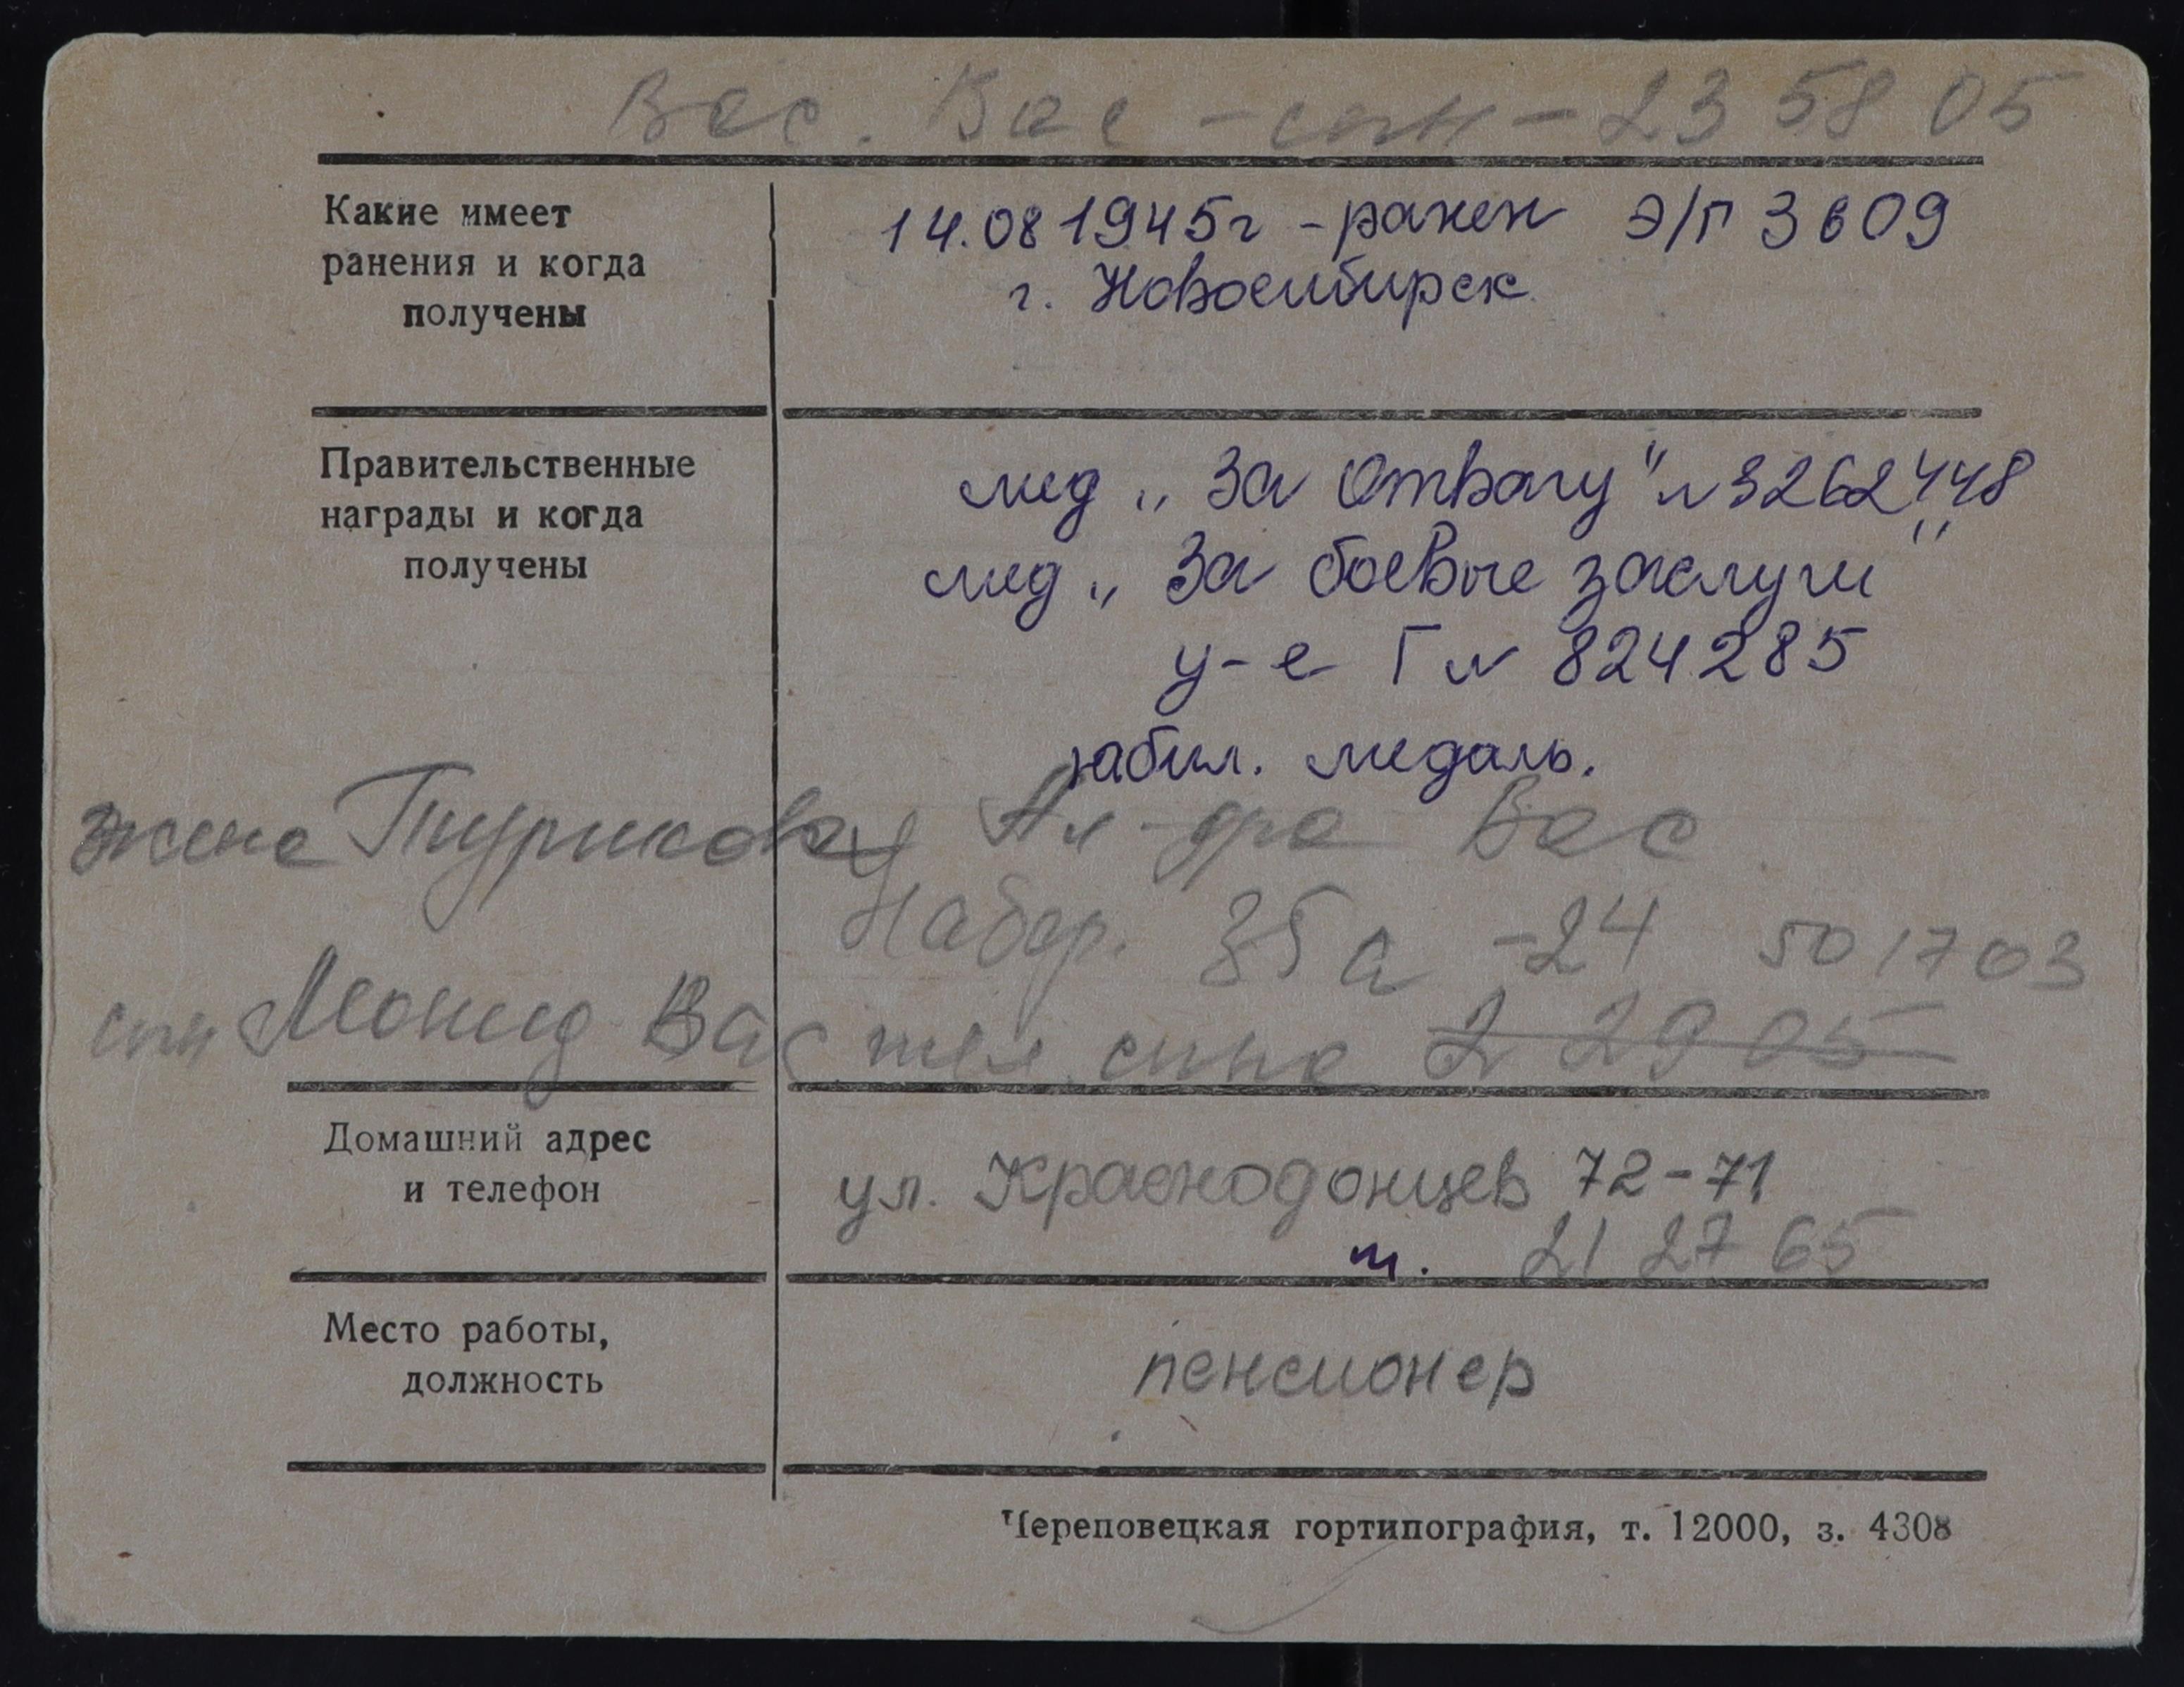 Вас. Вас - сын - 23 58 05
Какие имеет
ранения и когда
получены
14.08 1945г - ранен Э/Г 3609
г. Новосибирск
Правительственные
награды и когда
получены
мед „За Отвагу" N 3262448
мед „За боевые заслуги"
у-е Г N 824285
юбил. медаль.
жена Ал-дра Вас
Набер. 35а - 24 50 17 03
сын Леонид Вас тел. сына 2 29 05
Домашний адрес
и телефон
ул. Краснодонцев 72-71
т. 21 27 65
Место работы,
должность
пенсионер
Череповецкая гортипография, т. 12000, з. 4308